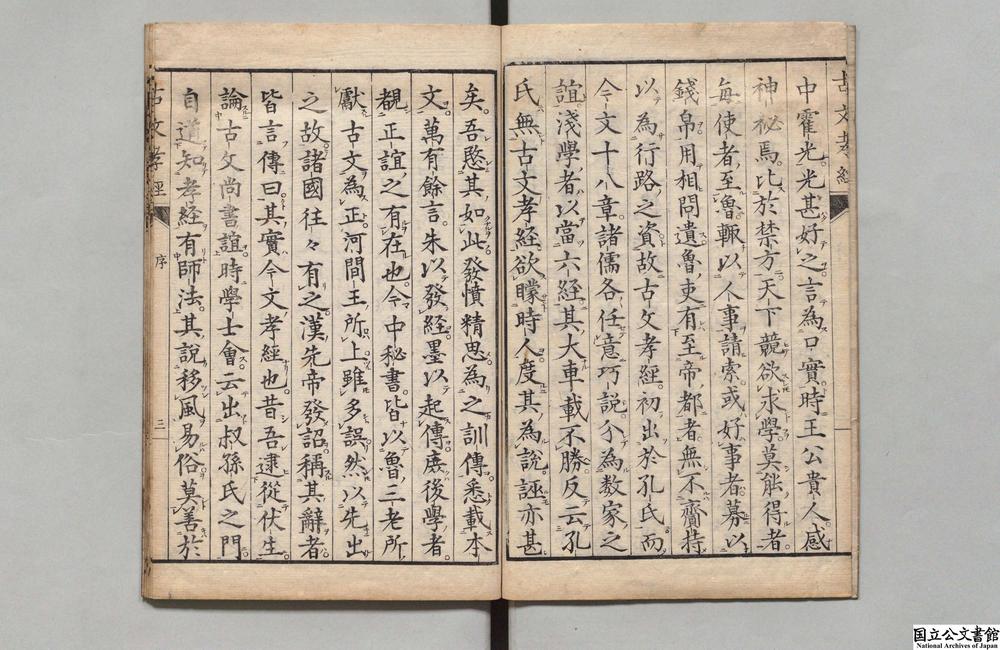 古文孝經
中霍光光甚好之言為口實時王公貴人咸
神祕焉比於禁方天下競欲求學莫能得者
每使者至魯輒以人事請索或好事者募以
錢帛用相問遺魯吏有至帝都者無不齎持
以為行路之資故古文孝經初出於孔氏而
今文十八章諸儒各任意巧說分為数家之
誼淺學者以當六經其大車載不勝反云孔
氏無古文孝經欲矇時人度其為說誣亦甚
矣吾愍其如此發憤精思為之訓傳悉載本
文萬有餘言朱以發經墨以起傳庶後學者
覩正誼之有在也今中秘書皆以魯三老所
獻古文為正河間王所上雖多誤然以先出
之故諸國往々有之漢先帝發詔稱其辭者
皆言傳曰其實今文孝經也昔吾逮從伏生
論古文尚書誼時學士會云出叔孫氏之門
自道知孝經有師法其說移風易俗莫善於
古文孝經
序
三
国立公文書館
National Archives of Japan